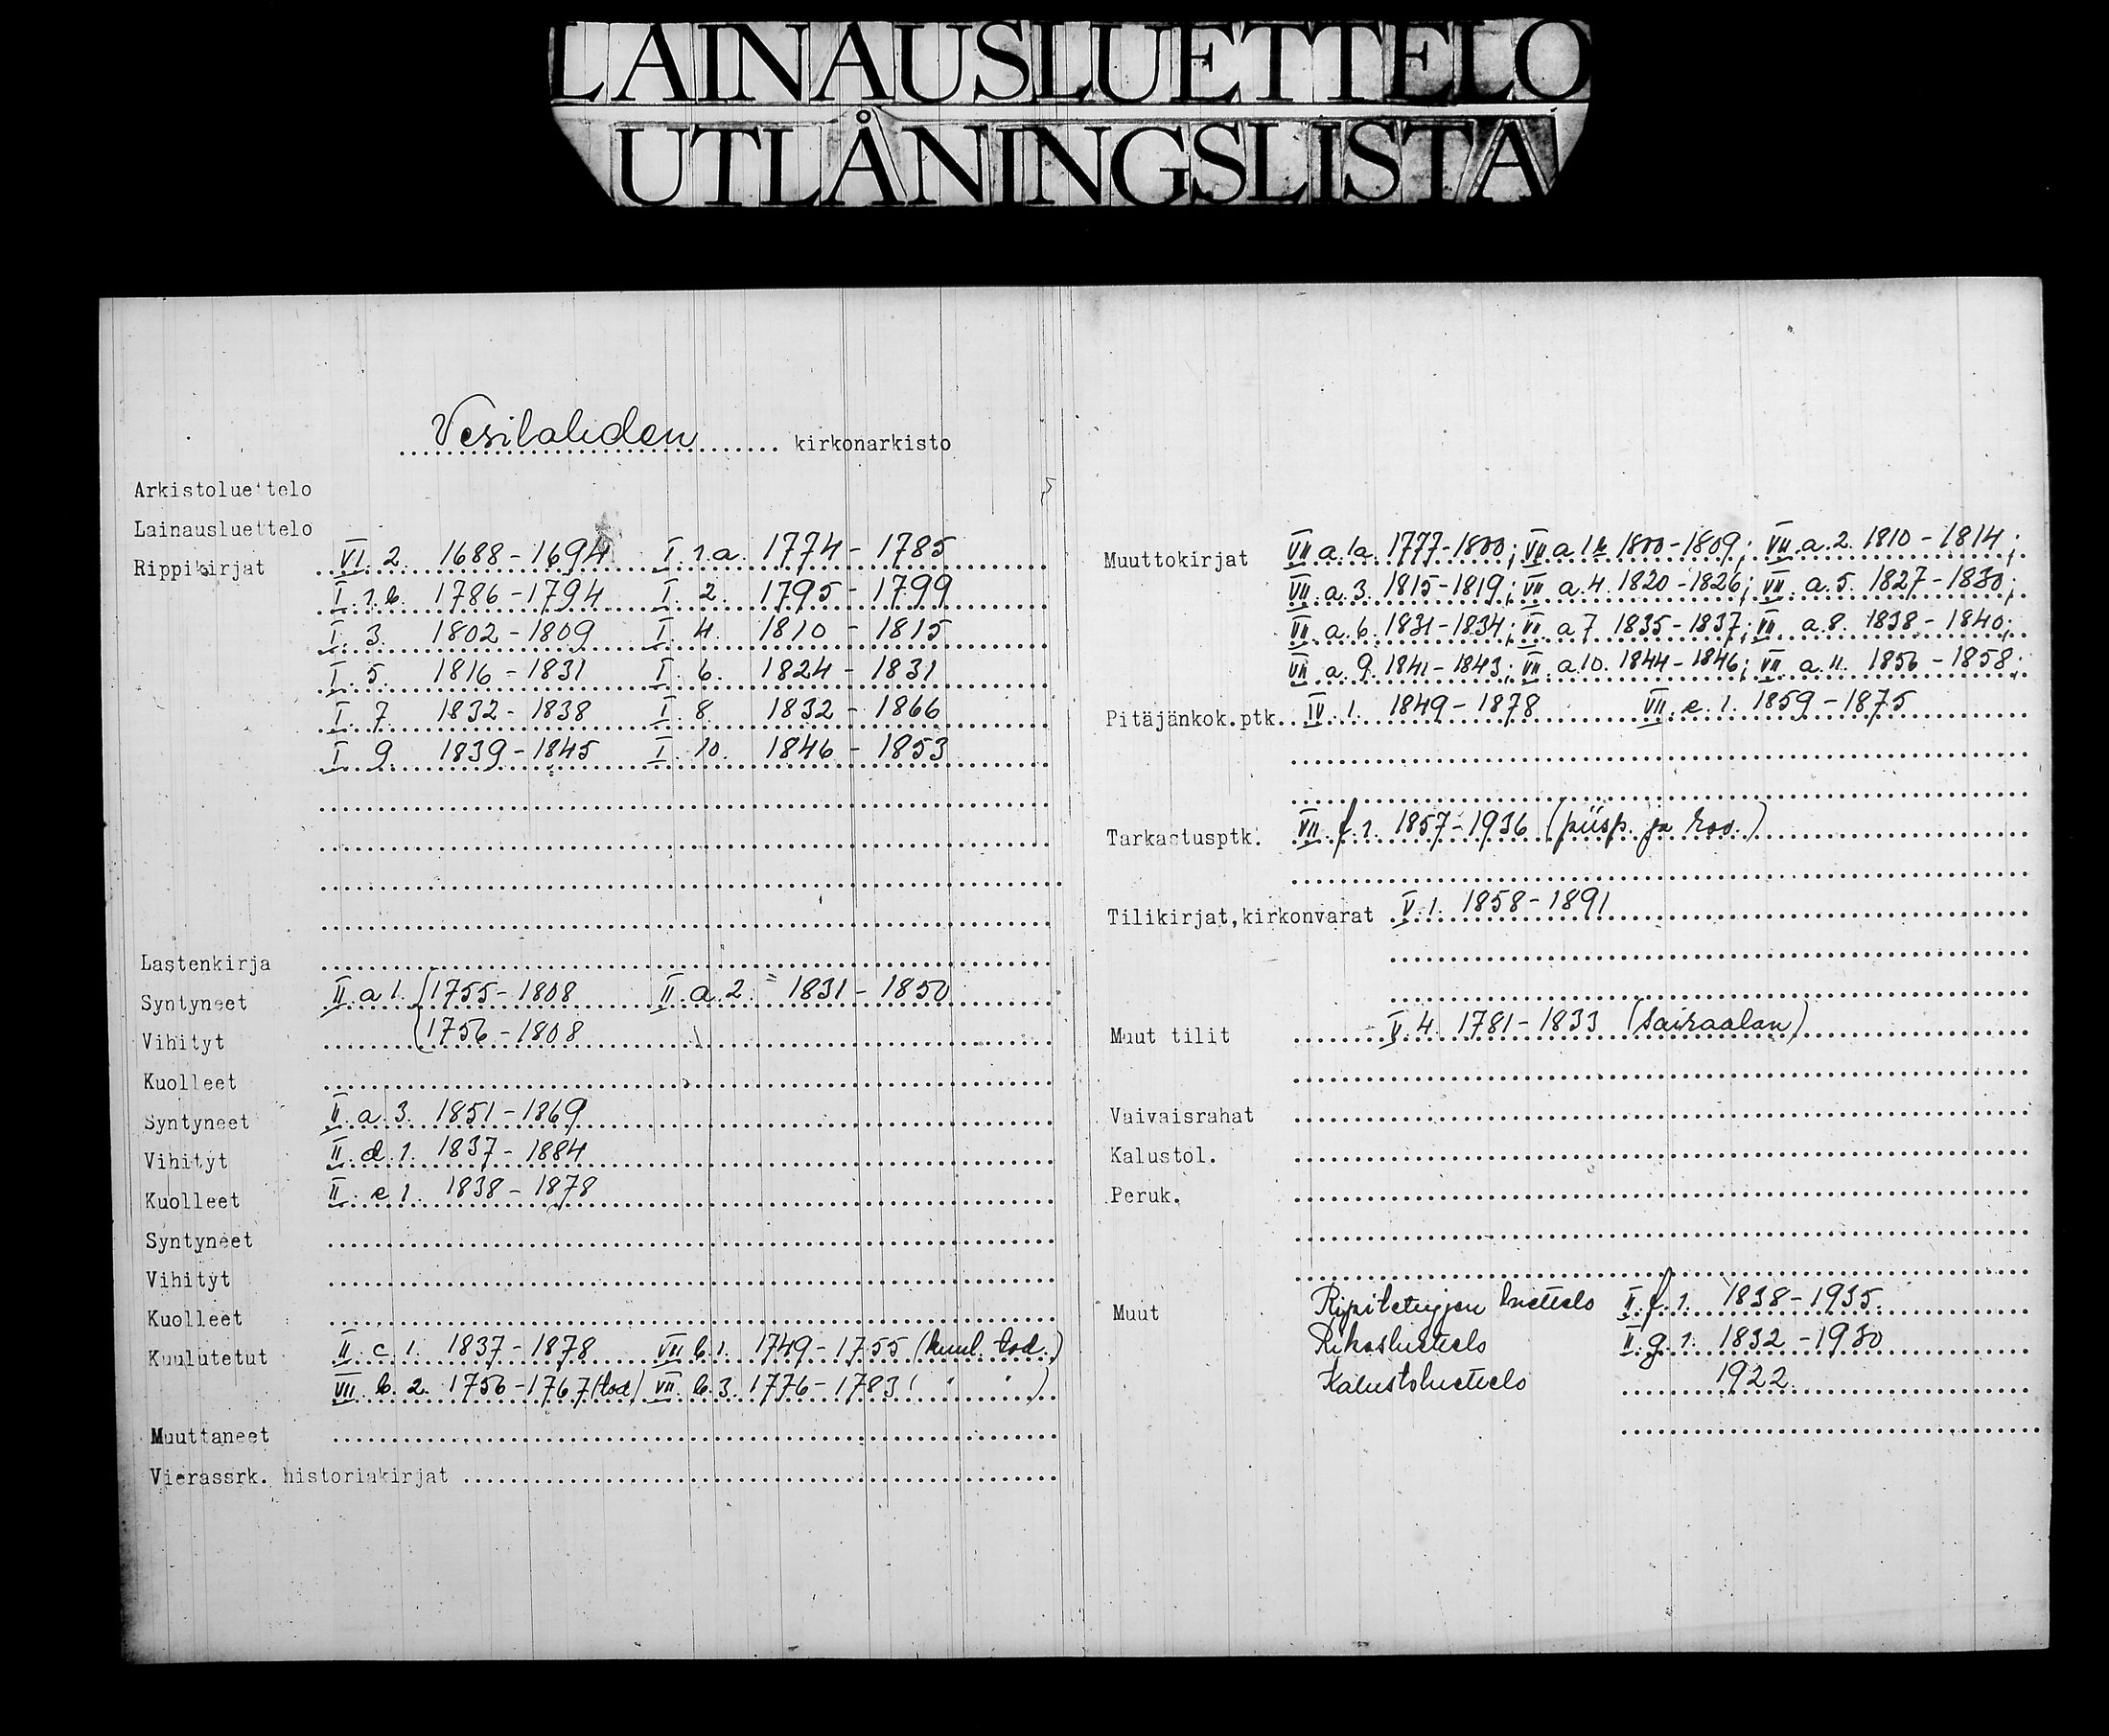 LAINAUSLUETTELO
UTLÅNINGSLISTA
Vesilahden kirkonarkisto
Arkistoluettelo
Lainausluettelo
Rippikirjat VI. 2. 1688-1694 I. 1.a. 1774-1785
I. 1.b. 1786-1794 I. 2. 1795-1799
I. 3. 1802-1809 I. 4. 1810-1815
I. 5. 1816-1831 I. 6. 1824-1831
I. 7. 1832-1838 I. 8. 1832-1866
I. 9. 1839-1845 I. 10. 1846-1853
Lastenkirja
Syntyneet II. a 1. 1755-1808 II. a. 2. 1831-1850
Vihityt 1756-1808
Kuolleet
Syntyneet II. a. 3. 1851-1869
Vihityt II. d. 1. 1837-1884
Kuolleet II. e 1. 1838-1878
Syntyneet
Vihityt
Kuolleet
Kuulutetut II. c. 1. 1837-1878 VII b. 1. 1749-1755 (kuul. tod.)
VII. b. 2. 1756-1767 (tod) VII. b. 3. 1776-1783 ( " " )
Muuttaneet
Vierassrk. historiakirjat
Muuttokirjat VII a. 1a. 1777-1800; VII a 1b 1800-1809; VII. a. 2. 1810-1814;
VII. a. 3. 1815-1819; VII a. 4. 1820-1826; VII. a. 5. 1827-1830;
VII. a. 6. 1831-1834; VII. a 7 1835-1837; VII a. 8. 1838-1840;
VII. a. 9. 1841-1843; VII. a. 10. 1844-1846; VII a. 11. 1856-1858;
Pitäjänkok.ptk. IV. 1. 1849-1878 VII. e. 1. 1859-1875
Tarkastusptk. VII. f. 1. 1857-1936 (piisp. ja rov.)
Tilikirjat,kirkonvarat V. 1. 1858-1891
Muut tilit V. 4. 1781-1833 (Sairaalan)
Vaivaisrahat
Kalustol.
Peruk.
Muut Ripiltetujjen luettelo II. f. 1. 1838-1935.
Rikosluettelo II. g. 1. 1832-1930
Kalustoluettelo 1922.